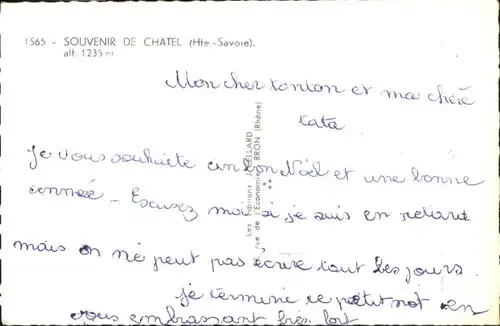 1565 - SOUVENIR DE CHATEL (Hte-Savoie).
alt. 1235 m
Mon cher tonton et ma chère
tata
je vous souhaite un bon Noël et une bonne
année - Escusez moi si je suis en retard
mais on ne peut pas écrire tout les jours
je termine ce petit mot en
vous embrassant très fort
Les Editions
rue de l'Economie BRON (Rhône)